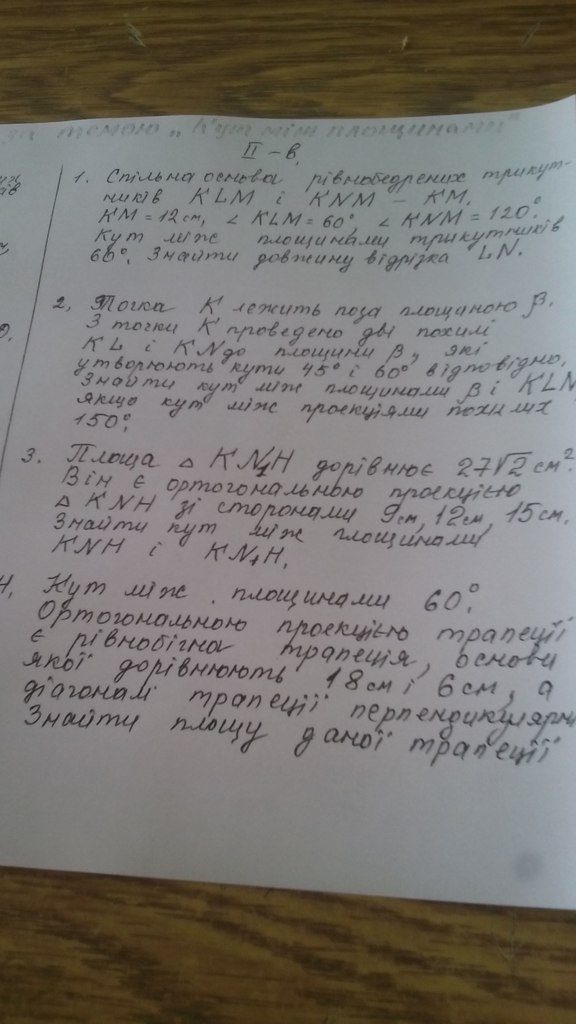 за темою „Кут між площинами"
II – в.
1. Спільна основа рівнобедрених трикут-
ників KLM і KNM – KM.
KM = 12 см, ∠ KLM = 60°, ∠ KNM = 120°.
Кут між площинами трикутників
60°. Знайти довжину відрізка LN.
2. Точка K лежить поза площиною β.
З точки K проведено дві похилі
KL і KN до площини β, які
утворюють кути 45° і 60° відповідно.
Знайти кут між площинами β і KLN,
якщо кут між проекціями похилих
150°.
3. Площа △ KN₁H дорівнює 27√2 см².
Він є ортогональною проекцією
△ KNH зі сторонами 9см, 12см, 15см.
Знайти кут між площинами
KNH і KN₁H.
4. Кут між площинами 60°.
Ортогональною проекцією трапеції
є рівнобічна трапеція, основи
якої дорівнюють 18 см і 6 см, а
діагоналі трапеції перпендикулярні
Знайти площу даної трапеції